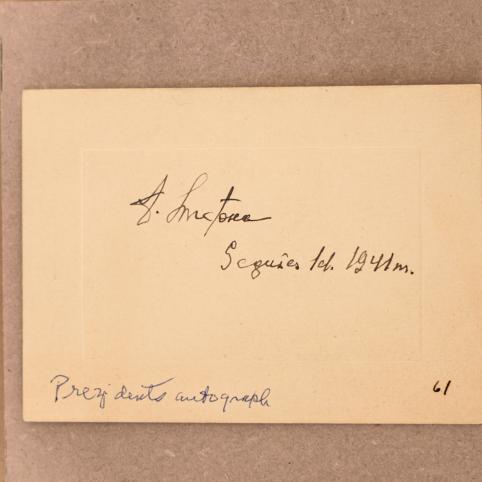 A. Smetona
Gegužės 1d. 1941 m.
Prezidents autograph
61